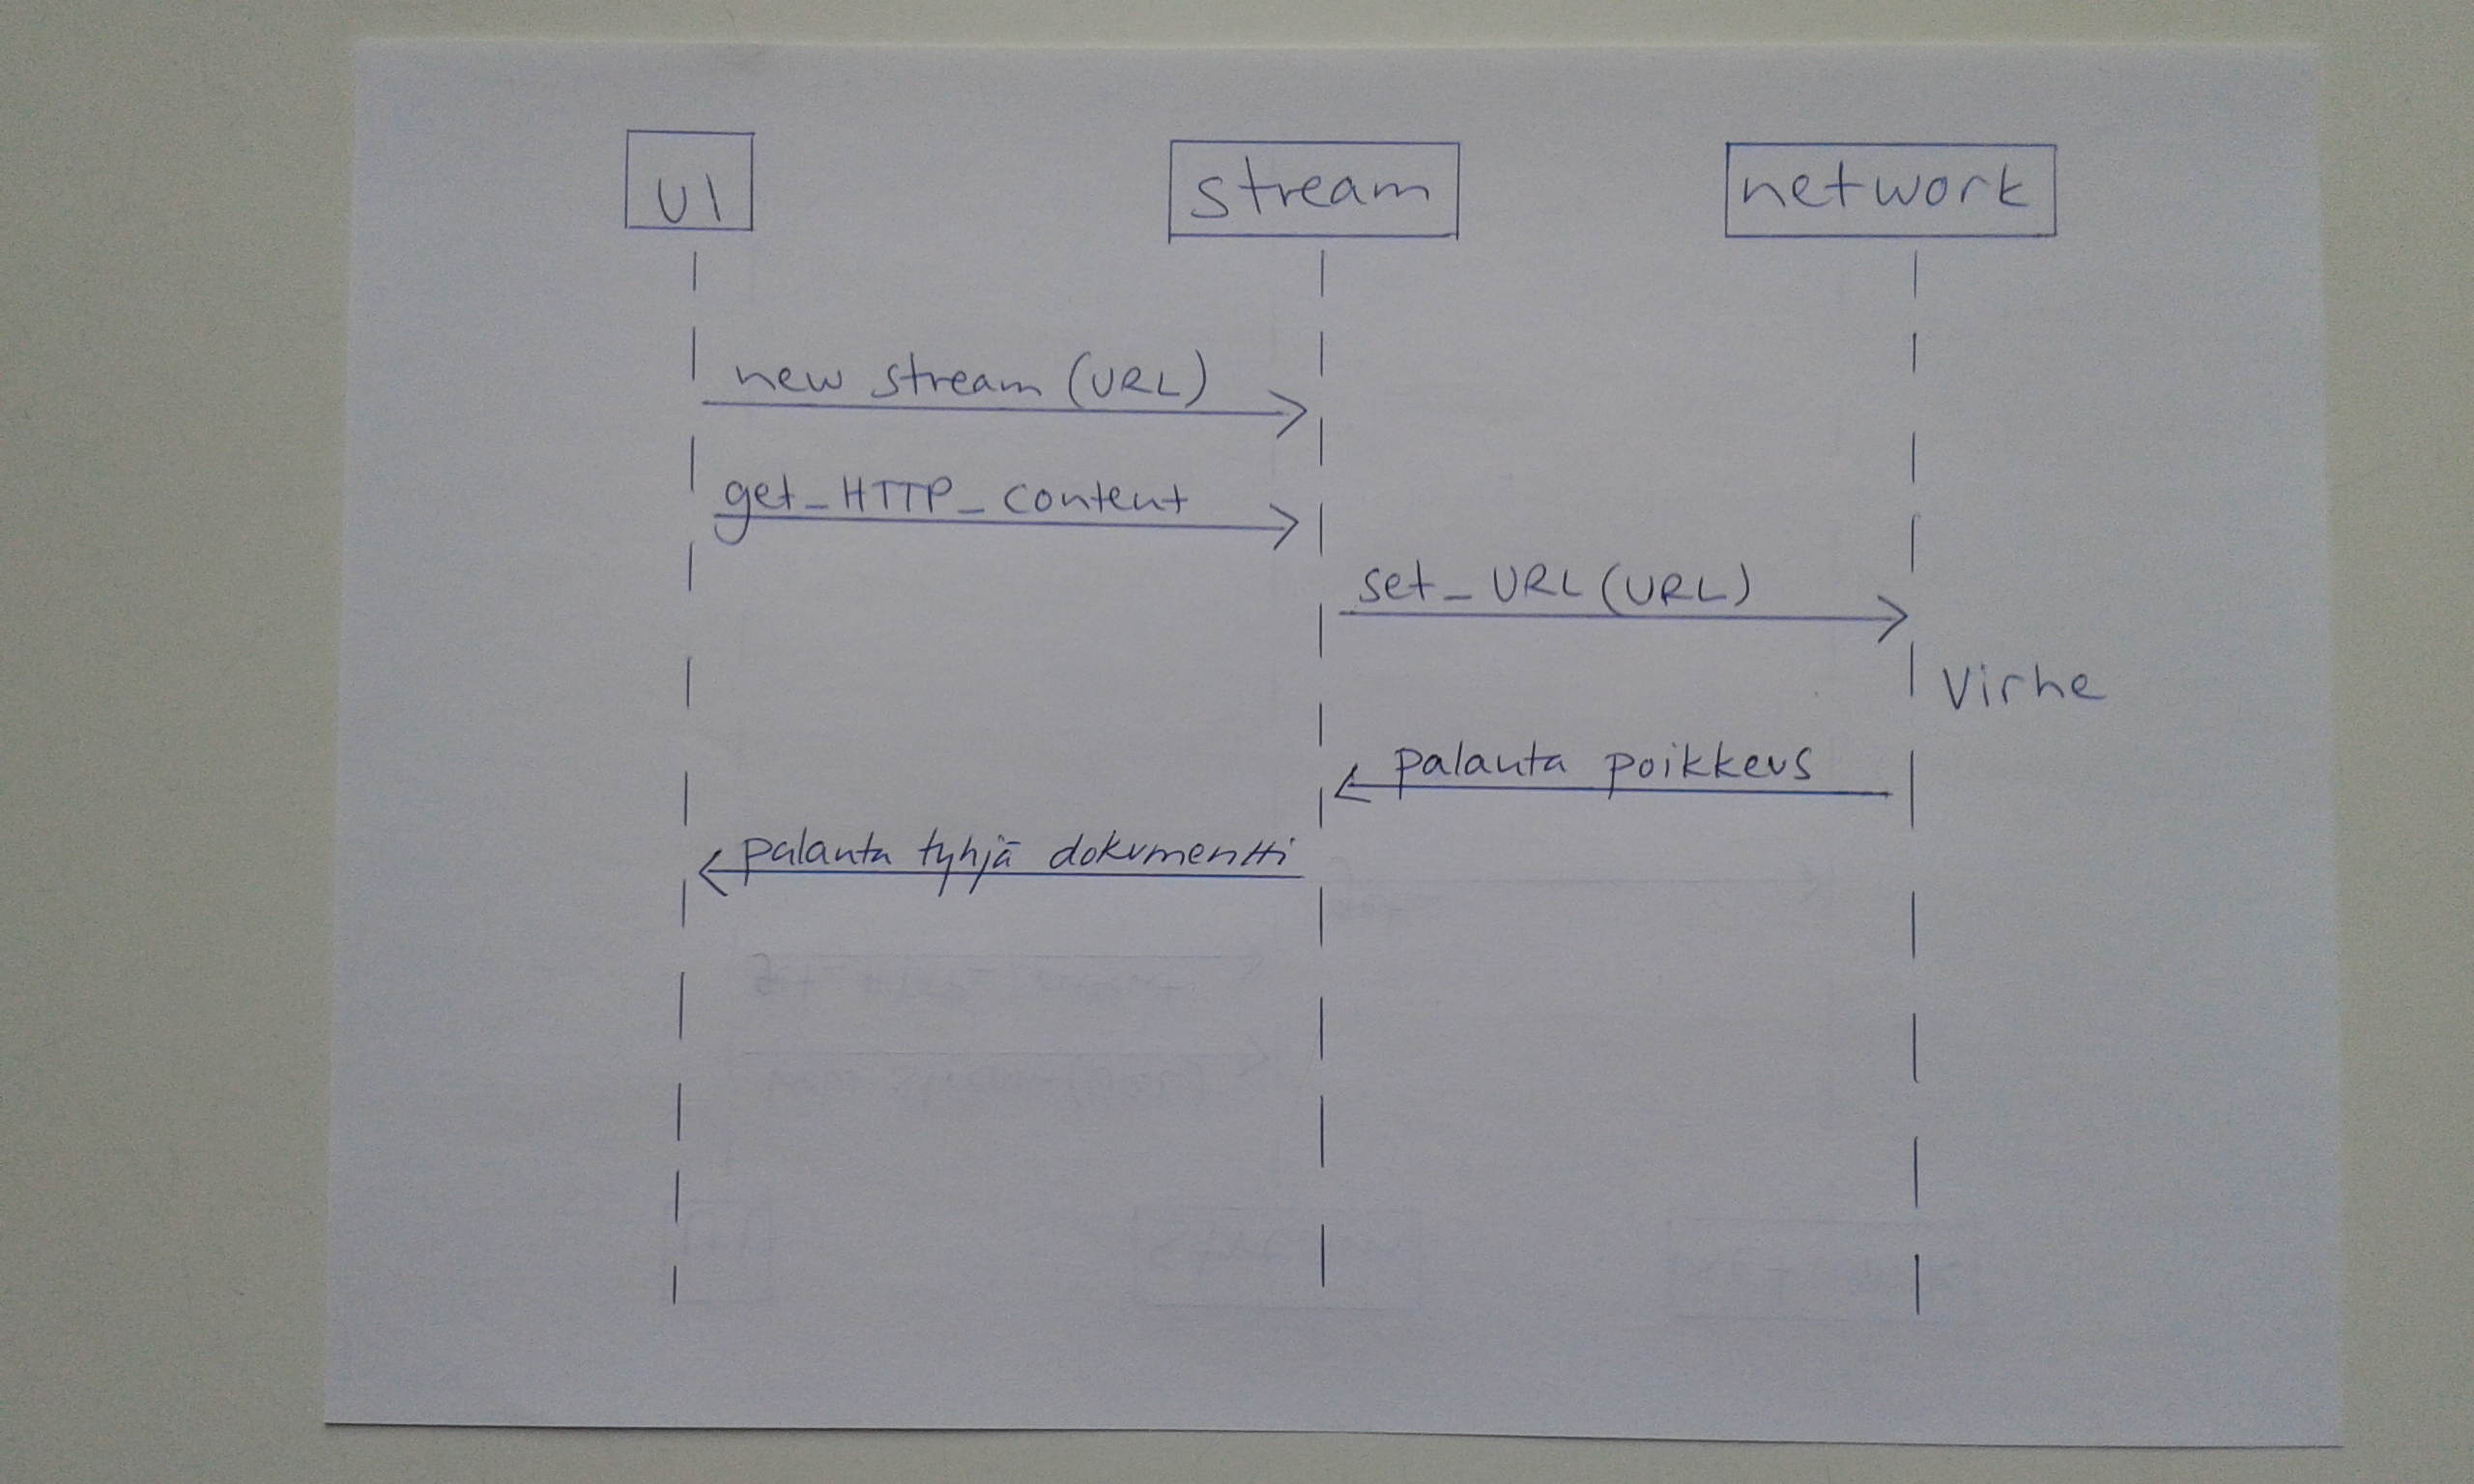 UI
stream
network
new stream (URL)
get_HTTP_content
set_URL (URL)
Virhe
palanta poikkeus
palanta tyhjä dokumentti